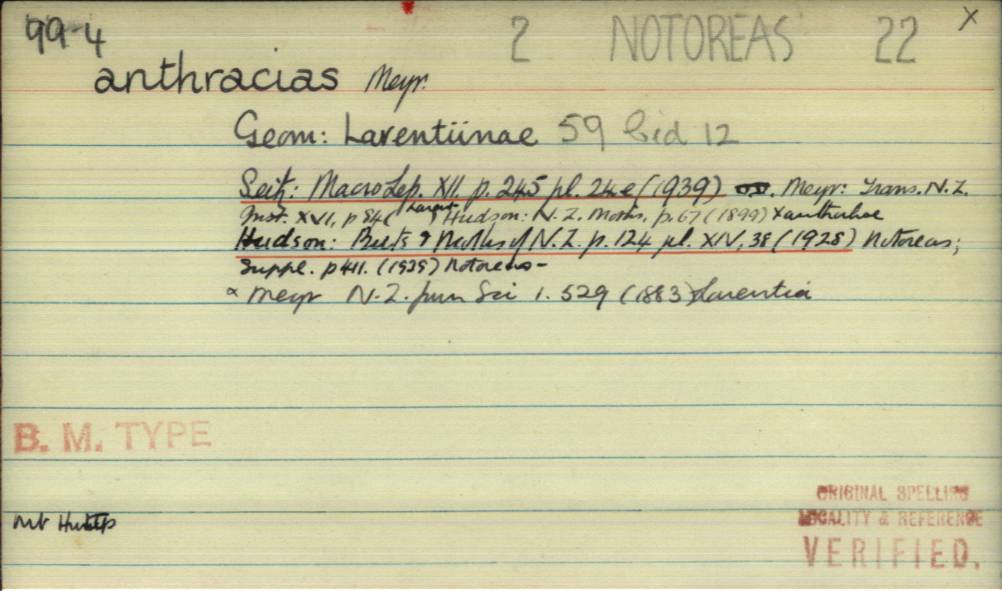 99-4 2 NOTOREAS 22 x
anthracias Meyr.
Geom: Larentiinae 59 12
Seitz: MacroLep. XII p. 245 pl. 24e (1939) Meyr: Trans. N.Z.
Inst. XVI, p 84 Larent Hudson: N.Z. Moths, p. 67 (1899) Xanthorhoe
Hudson: Butts & Moths of N.Z. p. 124 pl. XIV, 38 (1928) Notoreas;
Suppl. p 411. (1939) Notoreas-
x Meyr N.Z. Journ Sci 1. 529 (1883) Larentia
B. M. TYPE
Mt Hutt
ORIGINAL SPELLING
LOCALITY & REFERENCE
VERIFIED.